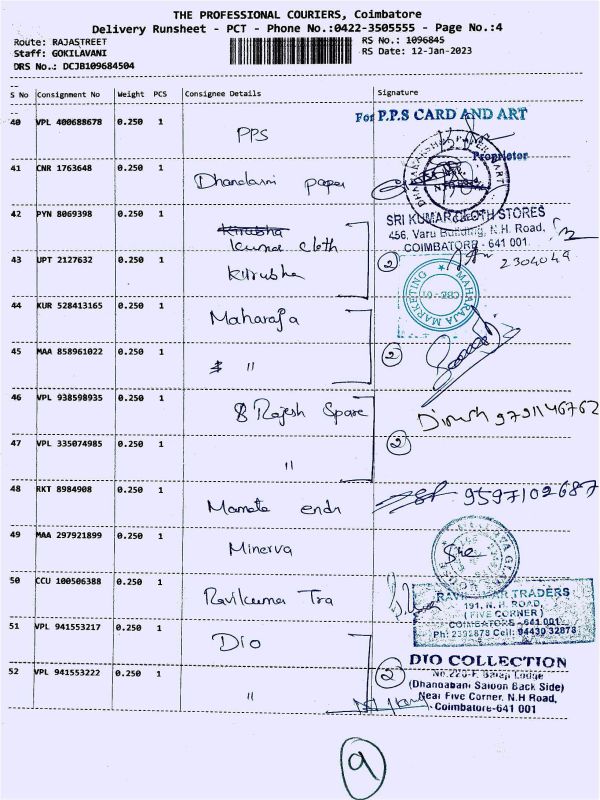 THE PROFESSIONAL COURIERS, Coimbatore
Delivery Runsheet - PCT - Phone No.:0422-3505555 - Page No.:4
Route: RAJASTREET
RS No.: 1096845
Staff: GOKILAVANI
RS Date: 12-Jan-2023
DRS No.: DCJB109684504
S No Consignment No Weight PCS Consignee Details Signature
40 VPL 400688678 0.250 1 PPS
For P.P.S CARD AND ART
Proprietor
41 CNR 1763648 0.250 1 Dhandami paper
42 PYN 8069398 0.250 1 Kirubha
Kuma cloth
SRI KUMAR CLOTH STORES
456, Varu Building, N.H. Road,
COIMBATORE - 641 001
43 UPT 2127632 0.250 1 Kirubha
2 2304049
44 KUR 528413165 0.250 1 Maharaja
MAHARAJA MARKETING
CBE - 01
45 MAA 858961022 0.250 1 "
2
46 VPL 938598935 0.250 1 Rajesh Spare
Dinesh 9791146762
47 VPL 335074985 0.250 1 "
2
48 RKT 8984908 0.250 1 Mamata endr
9597102687
49 MAA 297921899 0.250 1 Minerva
50 CCU 100506388 0.250 1 Ravikuma Tra
TRADERS
191, N. H. ROAD,
( FIVE CORNER )
COIMBATORE - 641 001
Ph: 2392878 Cell: 94430 32878
51 VPL 941553217 0.250 1 DIO
DIO COLLECTION
52 VPL 941553222 0.250 1 "
2
No.220-F, Balaji Lodge
(Dhandabani Saloon Back Side)
Near Five Corner, N.H Road,
Coimbatore-641 001
9